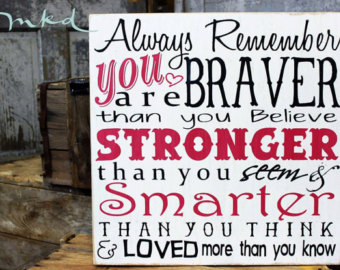 mkd
Always Remember
you are BRAVER
than you Believe
STRONGER
than you seem &
Smarter
THAN YOU THINK
& LOVED more than you know